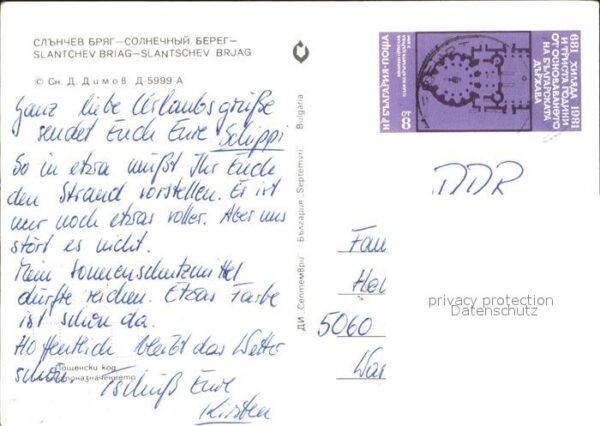 СЛЪНЧЕВ БРЯГ—СОЛНЕЧНЫЙ БЕРЕГ—
SLANTCHEV BRIAG—SLANTSCHEV BRJAG
© Сн. Д. Димов Д-5999-А
Ganz liebe Urlaubsgrüße
sendet Euch Eure Schippi
So in etwa müßt Ihr Euch
den Strand vorstellen. Er ist
nur noch etwas voller. Aber uns
stört es nicht.
Mein Sonnenschutzmittel
dürfte reichen. Etwas Farbe
ist schon da.
Hoffentlich bleibt das Wetter
schön. Tschüß Eure
Kirsten
Пощенски код
ДИ „Септември" България „Septemvri" Bulgaria
681 ХИЛЯДА 1981
И ТРИСТА ГОДИНИ
ОТ ОСНОВАВАНЕТО
НА БЪЛГАРСКАТА
ДЪРЖАВА
НР БЪЛГАРИЯ·ПОЩА
DDR
Fam
He
5060
War
privacy protection
Datenschutz